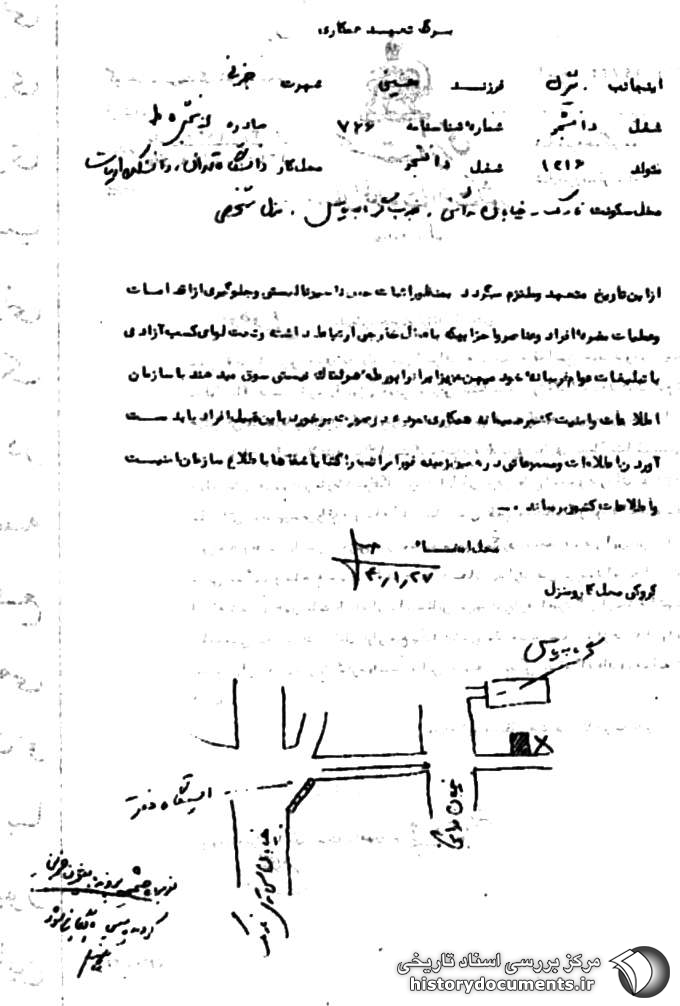 برگ تعهد همکاری
اینجانب بیژن فرزند حسین شهرت جزنی
شغل دانشجو شماره شناسنامه ۷۲۶ صادره از بخش ۵ ط
متولد ۱۳۱۶ شغل دانشجو محل کار دانشگاه تهران، دانشکده ادبیات
محل سکونت نارمک - خیابان مدائن، جنب گاراژ پلیس، منزل شخصی
از این تاریخ متعهد و ملتزم میگردد بمنظور اثبات حس ناسیونالیستی و جلوگیری از اقدامات
و عملیات مضره افراد و عناصر و احزابیکه با عمال خارجی ارتباط داشته و تحت لوای کسب آزادی
با تبلیغات عوام فریبانه خود میهن عزیز ایران را بورطه هولناک نیستی سوق میدهند با سازمان
اطلاعات و امنیت کشور صمیمانه همکاری نموده و در صورت برخورد با این قبیل افراد یا بدست
آوردن اطلاعات و مسموعاتی در همین زمینه فوراً مراتب را کتباً یا شفاهاً باطلاع سازمان امنیت
و اطلاعات کشور برساند .
محل امضاء
۴۰/۱/۲۷
کروکی محل کار و منزل
ایستگاه
خیابان مدائن
مرکز بررسی اسناد تاریخی
historydocuments.ir